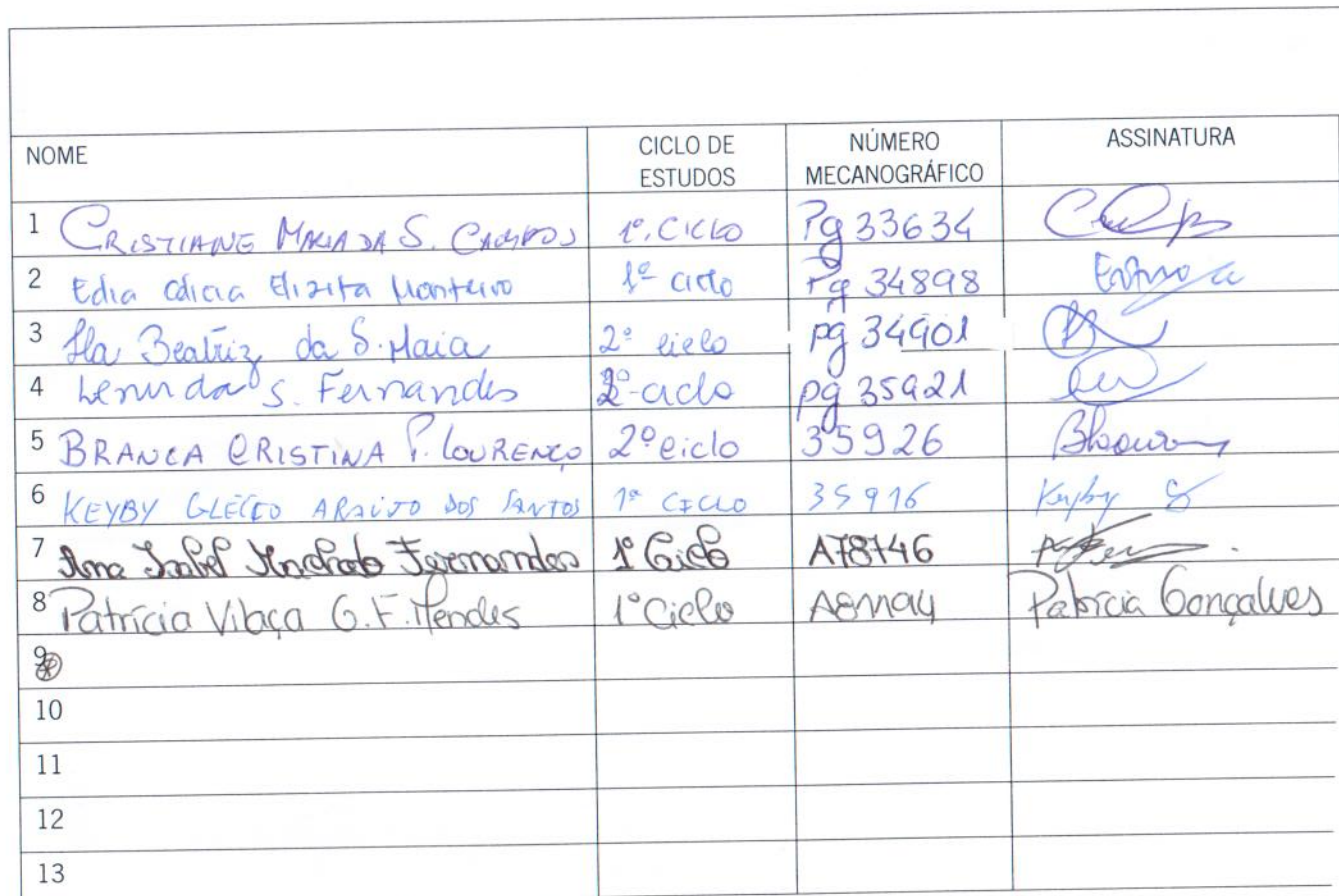 NOME CICLO DE ESTUDOS NÚMERO MECANOGRÁFICO ASSINATURA
1 CRISTIANE MARIA DA S. CAMPOS 1º. CICLO Pg 33634
2 Edia Elizita Monteiro 1º ciclo Pg 34898
3 Beatriz da S. Maia 2º ciclo pg 34901
4 S. Fernandes 2º-ciclo pg 35921
5 BRANCA CRISTINA P. LOURENÇO 2º ciclo 35926
6 KEYBY ARAÚJO DOS SANTOS 1º CICLO 35916 Keyby S
7 Ana Isabel Machado Fernandes 1º Ciclo A78746
8 Patrícia Vilaça G. F. Mendes 1º Ciclo Patrícia Gonçalves
9
10
11
12
13